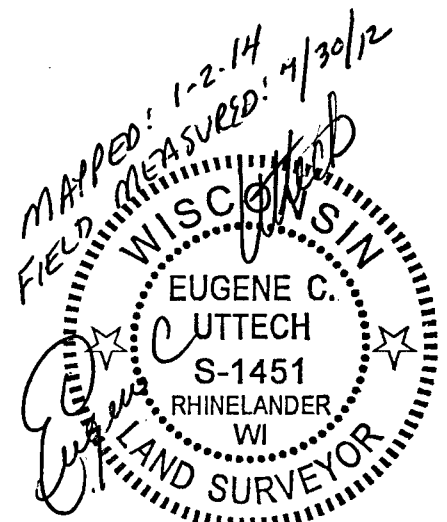 MAPPED: 1-2-14
FIELD MEASURED: 4/30/12
WISCONSIN
EUGENE C.
UTTECH
S-1451
RHINELANDER
WI
LAND SURVEYOR
Eugene C Uttech